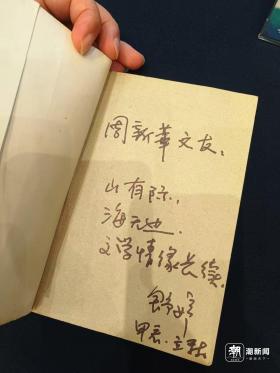 周新華文友:
山有际,
海无边.
文学情缘长续.
舒婷
甲辰.立秋
潮新闻